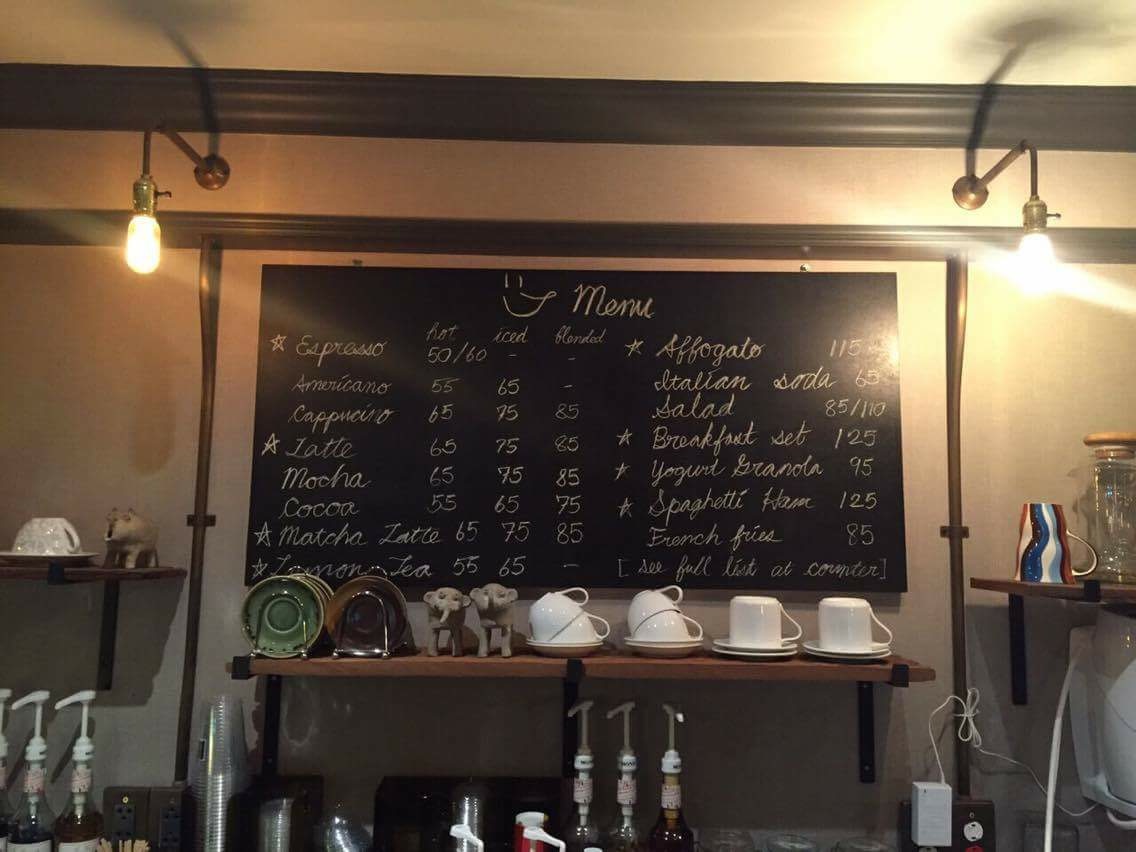 Menu
hot iced blended
☆ Espresso 50/60 - -
Americano 55 65 -
Cappucino 65 75 85
☆ Latte 65 75 85
Mocha 65 75 85
Cocoa 55 65 75
☆ Matcha Latte 65 75 85
☆ Lemon Tea 55 65 -
☆ Affogato 115
Italian soda 65
Salad 85/110
☆ Breakfast set 125
☆ Yogurt Granola 95
☆ Spaghetti Ham 125
French fries 85
[see full list at counter]